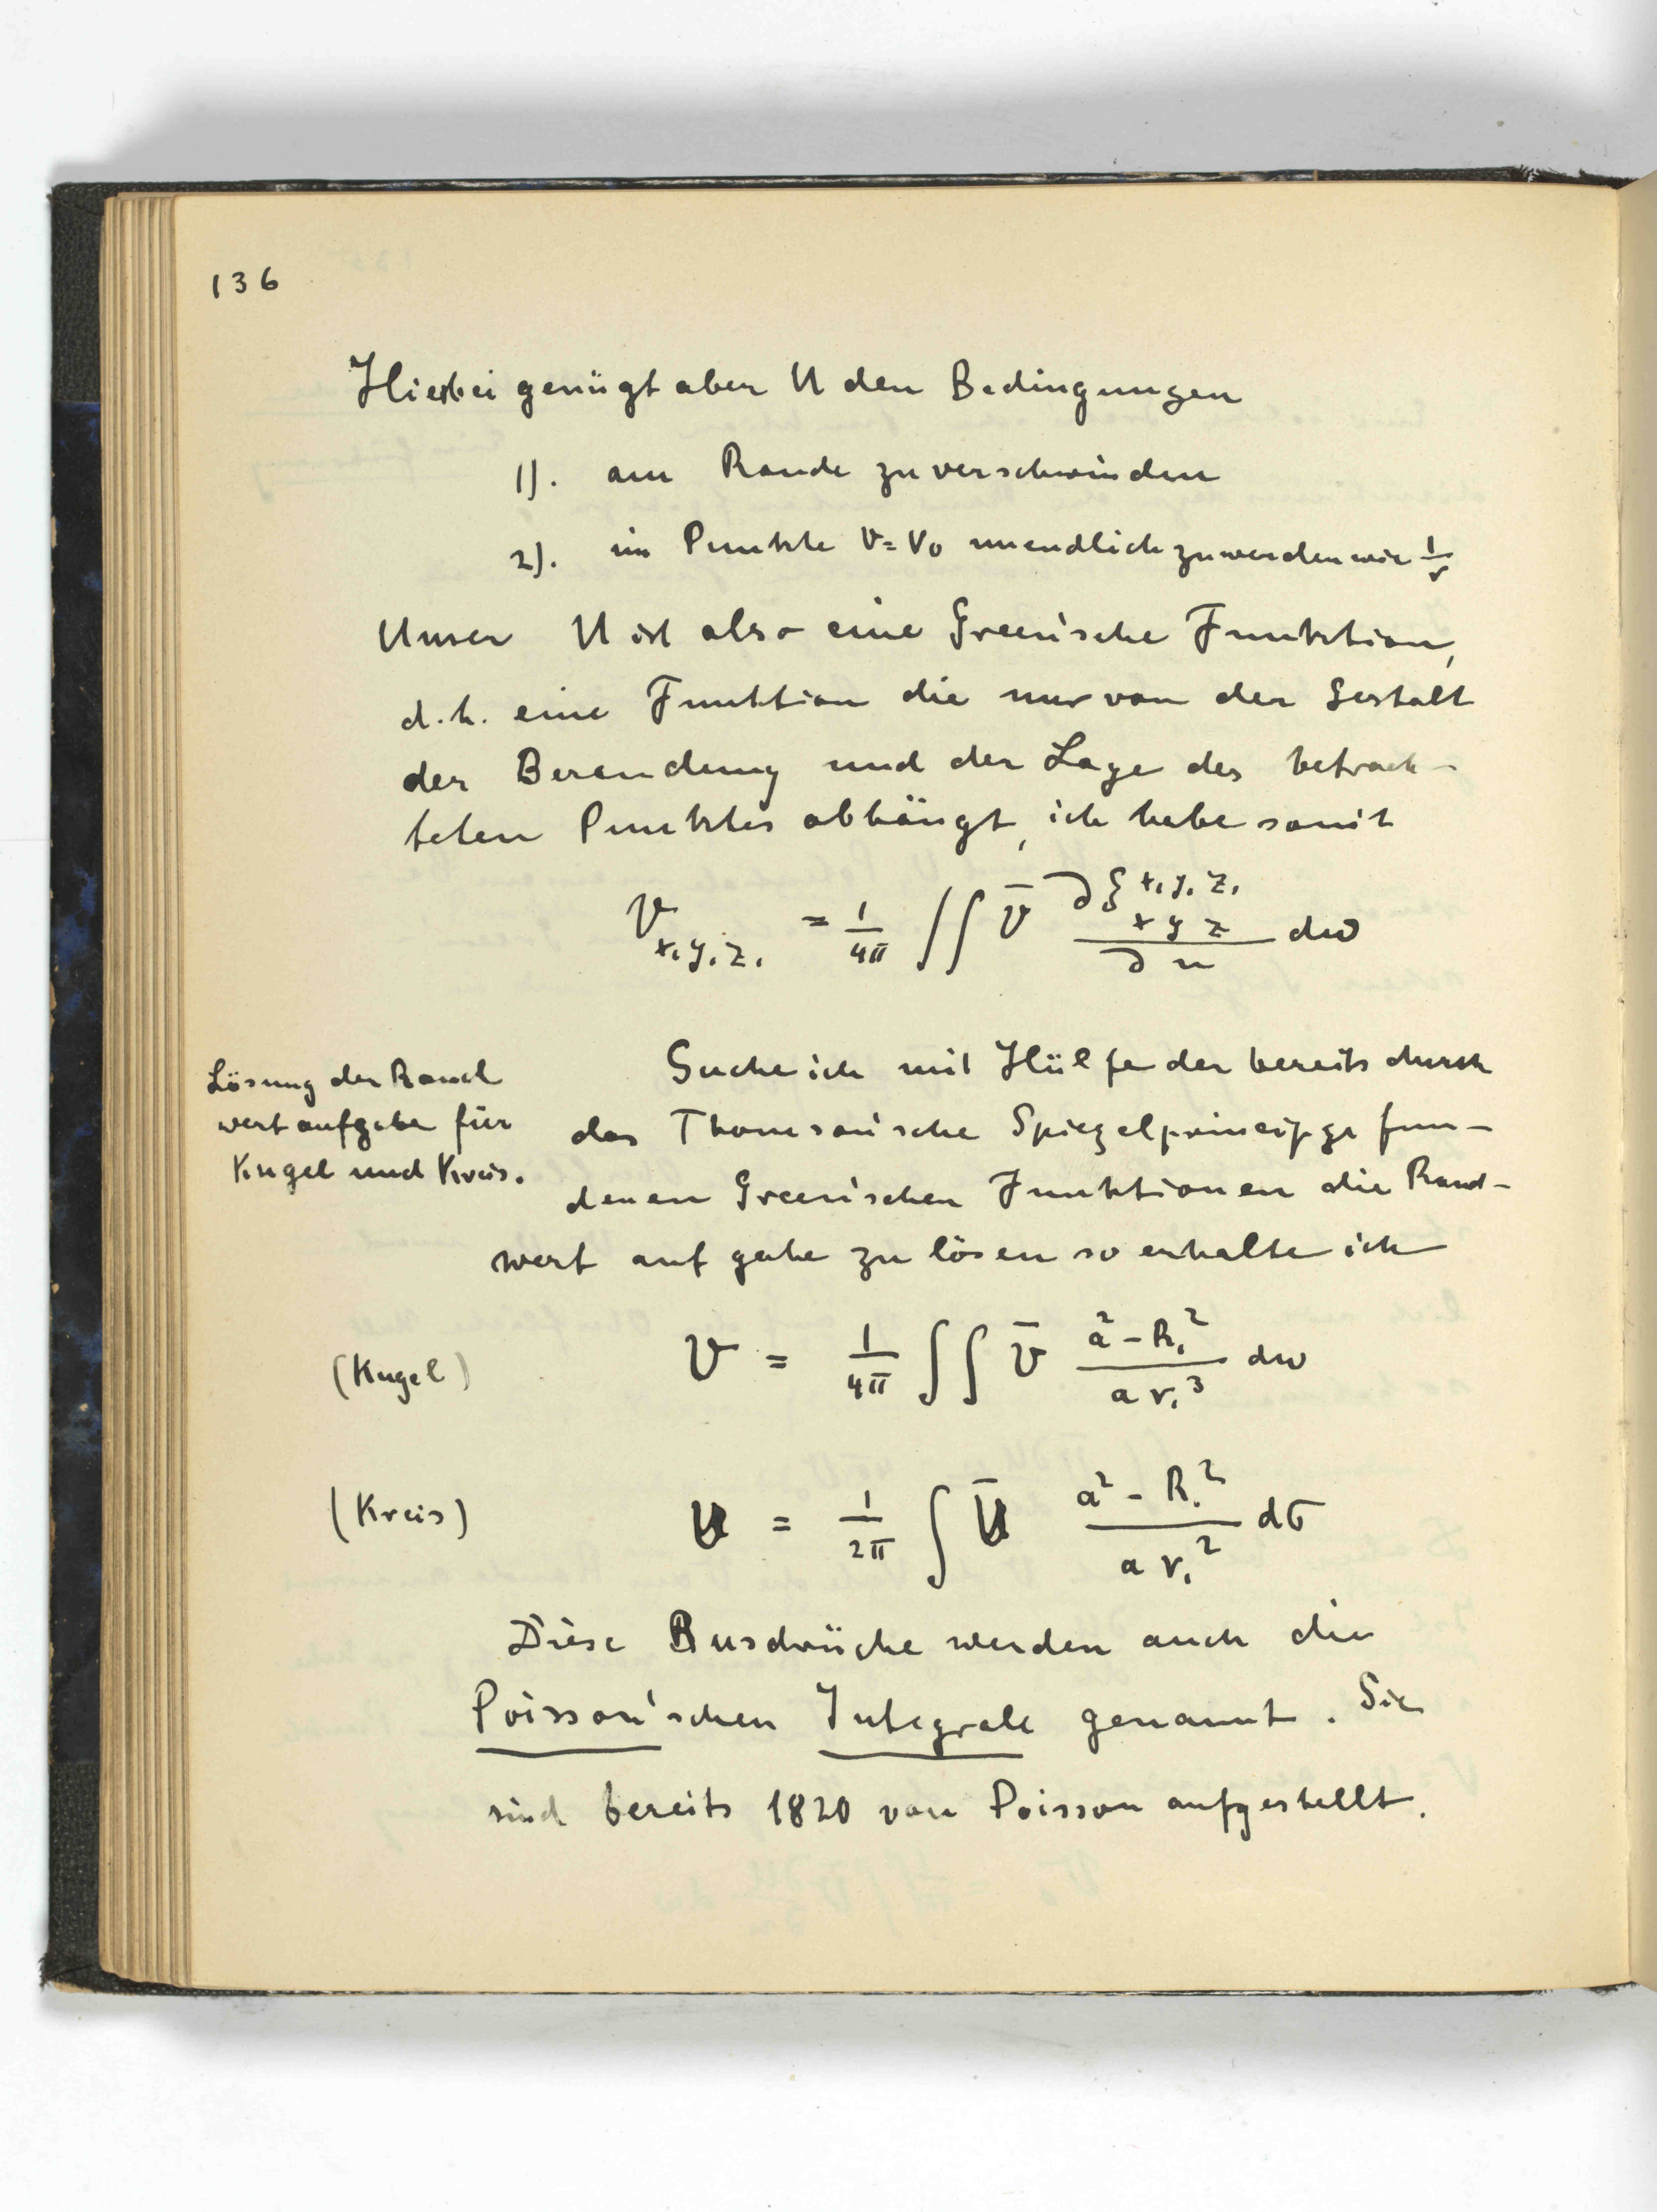 136
Hierbei genügt aber U den Bedingungen
1). am Rande zu verschwinden
2). im Punkte V=V₀ unendlich zu werden wie 1/r
Unser U ist also eine Green'sche Funktion,
d.h. eine Funktion die nur von der Gestalt
der Berandung und der Lage des betrach-
teten Punktes abhängt, ich habe somit
V x₁y₁z₁ = 1/4π ∫∫ V̄ ∂ξ x₁y₁z₁ xyz / ∂n dω
Lösung der Rand
wertaufgabe für
Kugel und Kreis.
Suche ich mit Hülfe der bereits durch
das Thomson'sche Spiegelprincip gefun-
denen Green'schen Funktionen die Rand-
wert aufgabe zu lösen so erhalte ich
(Kugel) V = 1/4π ∫∫ V̄ a² - R₁² / a r₁³ dω
(Kreis) U = 1/2π ∫ Ū a² - R₁² / a r₁² dσ
Diese Ausdrücke werden auch die
Poisson'schen Integrale genannt. Sie
sind bereits 1820 von Poisson aufgestellt.